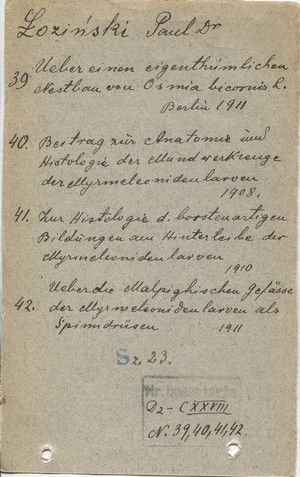 Łoziński Paul Dr
39. Ueber einen eigenthümlichen
Nestbau von Osmia bicornis L.
Berlin 1911
40. Beitrag zur Anatomie und
Histologie der Mundwerkzeuge
der Myrmeleonidenlarven
1908.
41. Zur Histologie d. borstenartigen
Bildungen am Hinterleibe der
Myrmeleonidenlarven
1910
42. Ueber die Malpighischen Gefässe
der Myrmeleonidenlarven als
Spinndrüsen 1911
Sz. 23.
Nr. inwentarza
Dz-CXXVIII
N. 39,40,41,42.